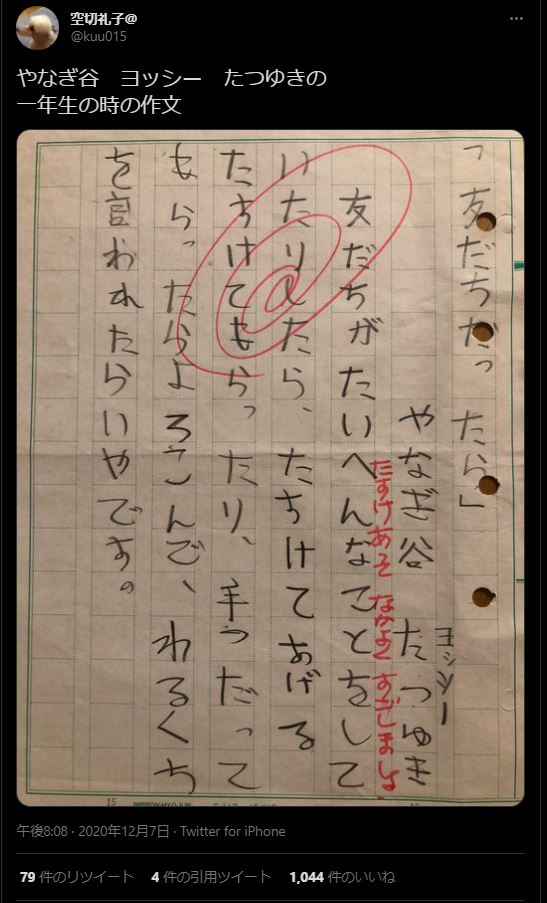 空切礼子@
@kuu015
やなぎ谷　ヨッシー　たつゆきの
一年生の時の作文
「友だちだったら」
ヨッシー
やなぎ谷 たつゆき
たすけあそ なかよく すごしましょ
友だちがたいへんなことをして
いたりしたら、たちけてあげる
たちけてもらったり、手つだって
もらったらよろこんで、わるくち
を言われたらいやです。
15
午後8:08 · 2020年12月7日 · Twitter for iPhone
79 件のリツイート 4 件の引用ツイート 1,044 件のいいね